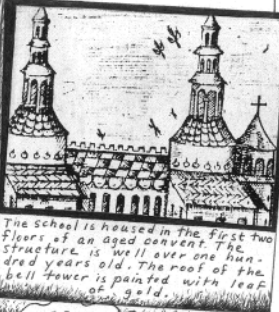 The school is housed in the first two
floors of an aged convent. The
structure is well over one hun-
dred years old. The roof of the
bell tower is painted with leaf
of gold.